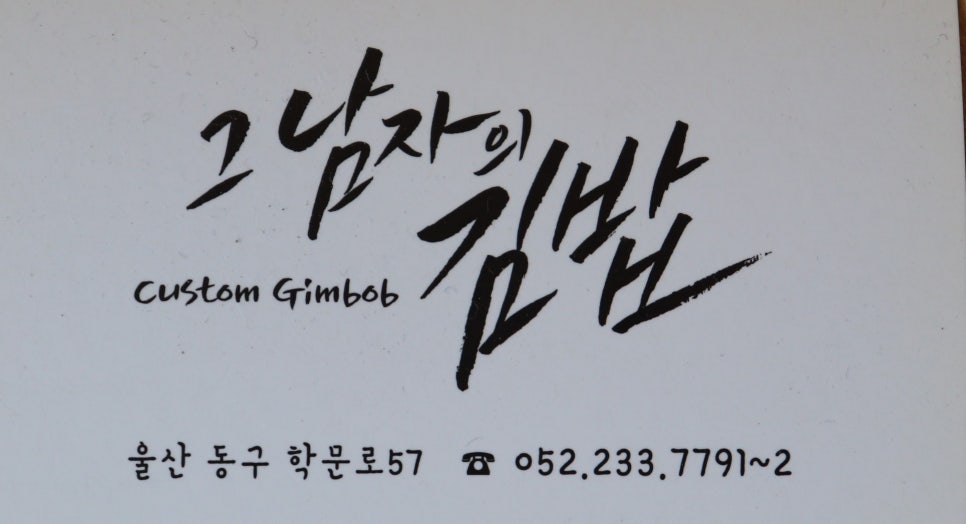 그 남자의
김밥
Custom Gimbob
울산 동구 학문로57 ☎ 052.233.7791~2